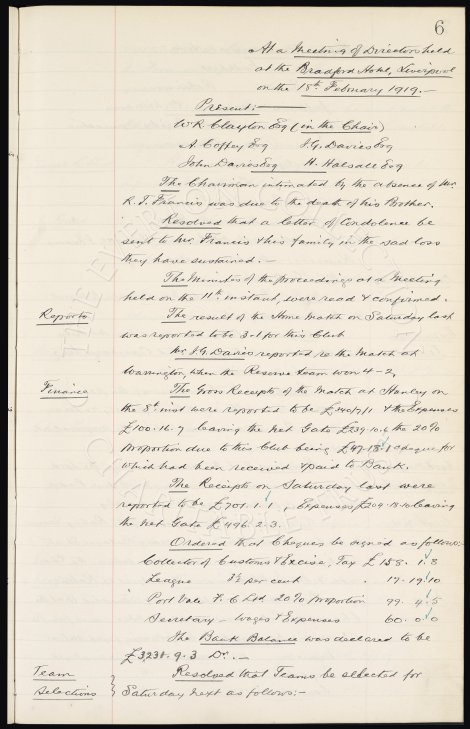 6
At a Meeting of Directors held
at the Bradford Hotel, Liverpool
on the 18th February 1919.-
Present:-
W.R. Clayton Esq (in the Chair)
A Coffey Esq J.G. Davies Esq
John Davies Esq H. Halsall Esq
The Chairman intimated by the absence of Mr.
R.T. Francis was due to the death of his Brother.
Resolved that a letter of Condolence be
sent to Mr. Francis & his family in the sad loss
they have sustained.-
The Minutes of the proceedings at a Meeting
held on the 11th instant, were read & confirmed.
Reports
The result of the Home Match on Saturday last
was reported to be 3-1 for this Club
Mr. J.G. Davies reported re the Match at
Warrington, when the Reserve team won 4-2,
Finance
The Gross Receipts of the Match at Hanley on
the 8th inst were reported to be £340/7/1 & the Expenses
£100.16.7 leaving the Net Gate £239.10.6 the 20%
proportion due to this Club being £47.18.1 cheque for
which had been received & paid to Bank.
The Receipts on Saturday last were
reported to be £701.1.1, Expenses £204.18.10 leaving
the Net Gate £496.2.3.
Ordered that Cheques be signed as follows:-
Collector of Customs & Excise, Tax £158.1.8
League per cent 17.19.10
Port Vale F.C Ltd 20% proportion 99.4.5
Secretary - Wages & Expenses 60.0.0
The Bank Balance was declared to be
£3231.9.3 Dr.-
Team
Selections
Resolved that Teams be selected for
Saturday next as follows:-